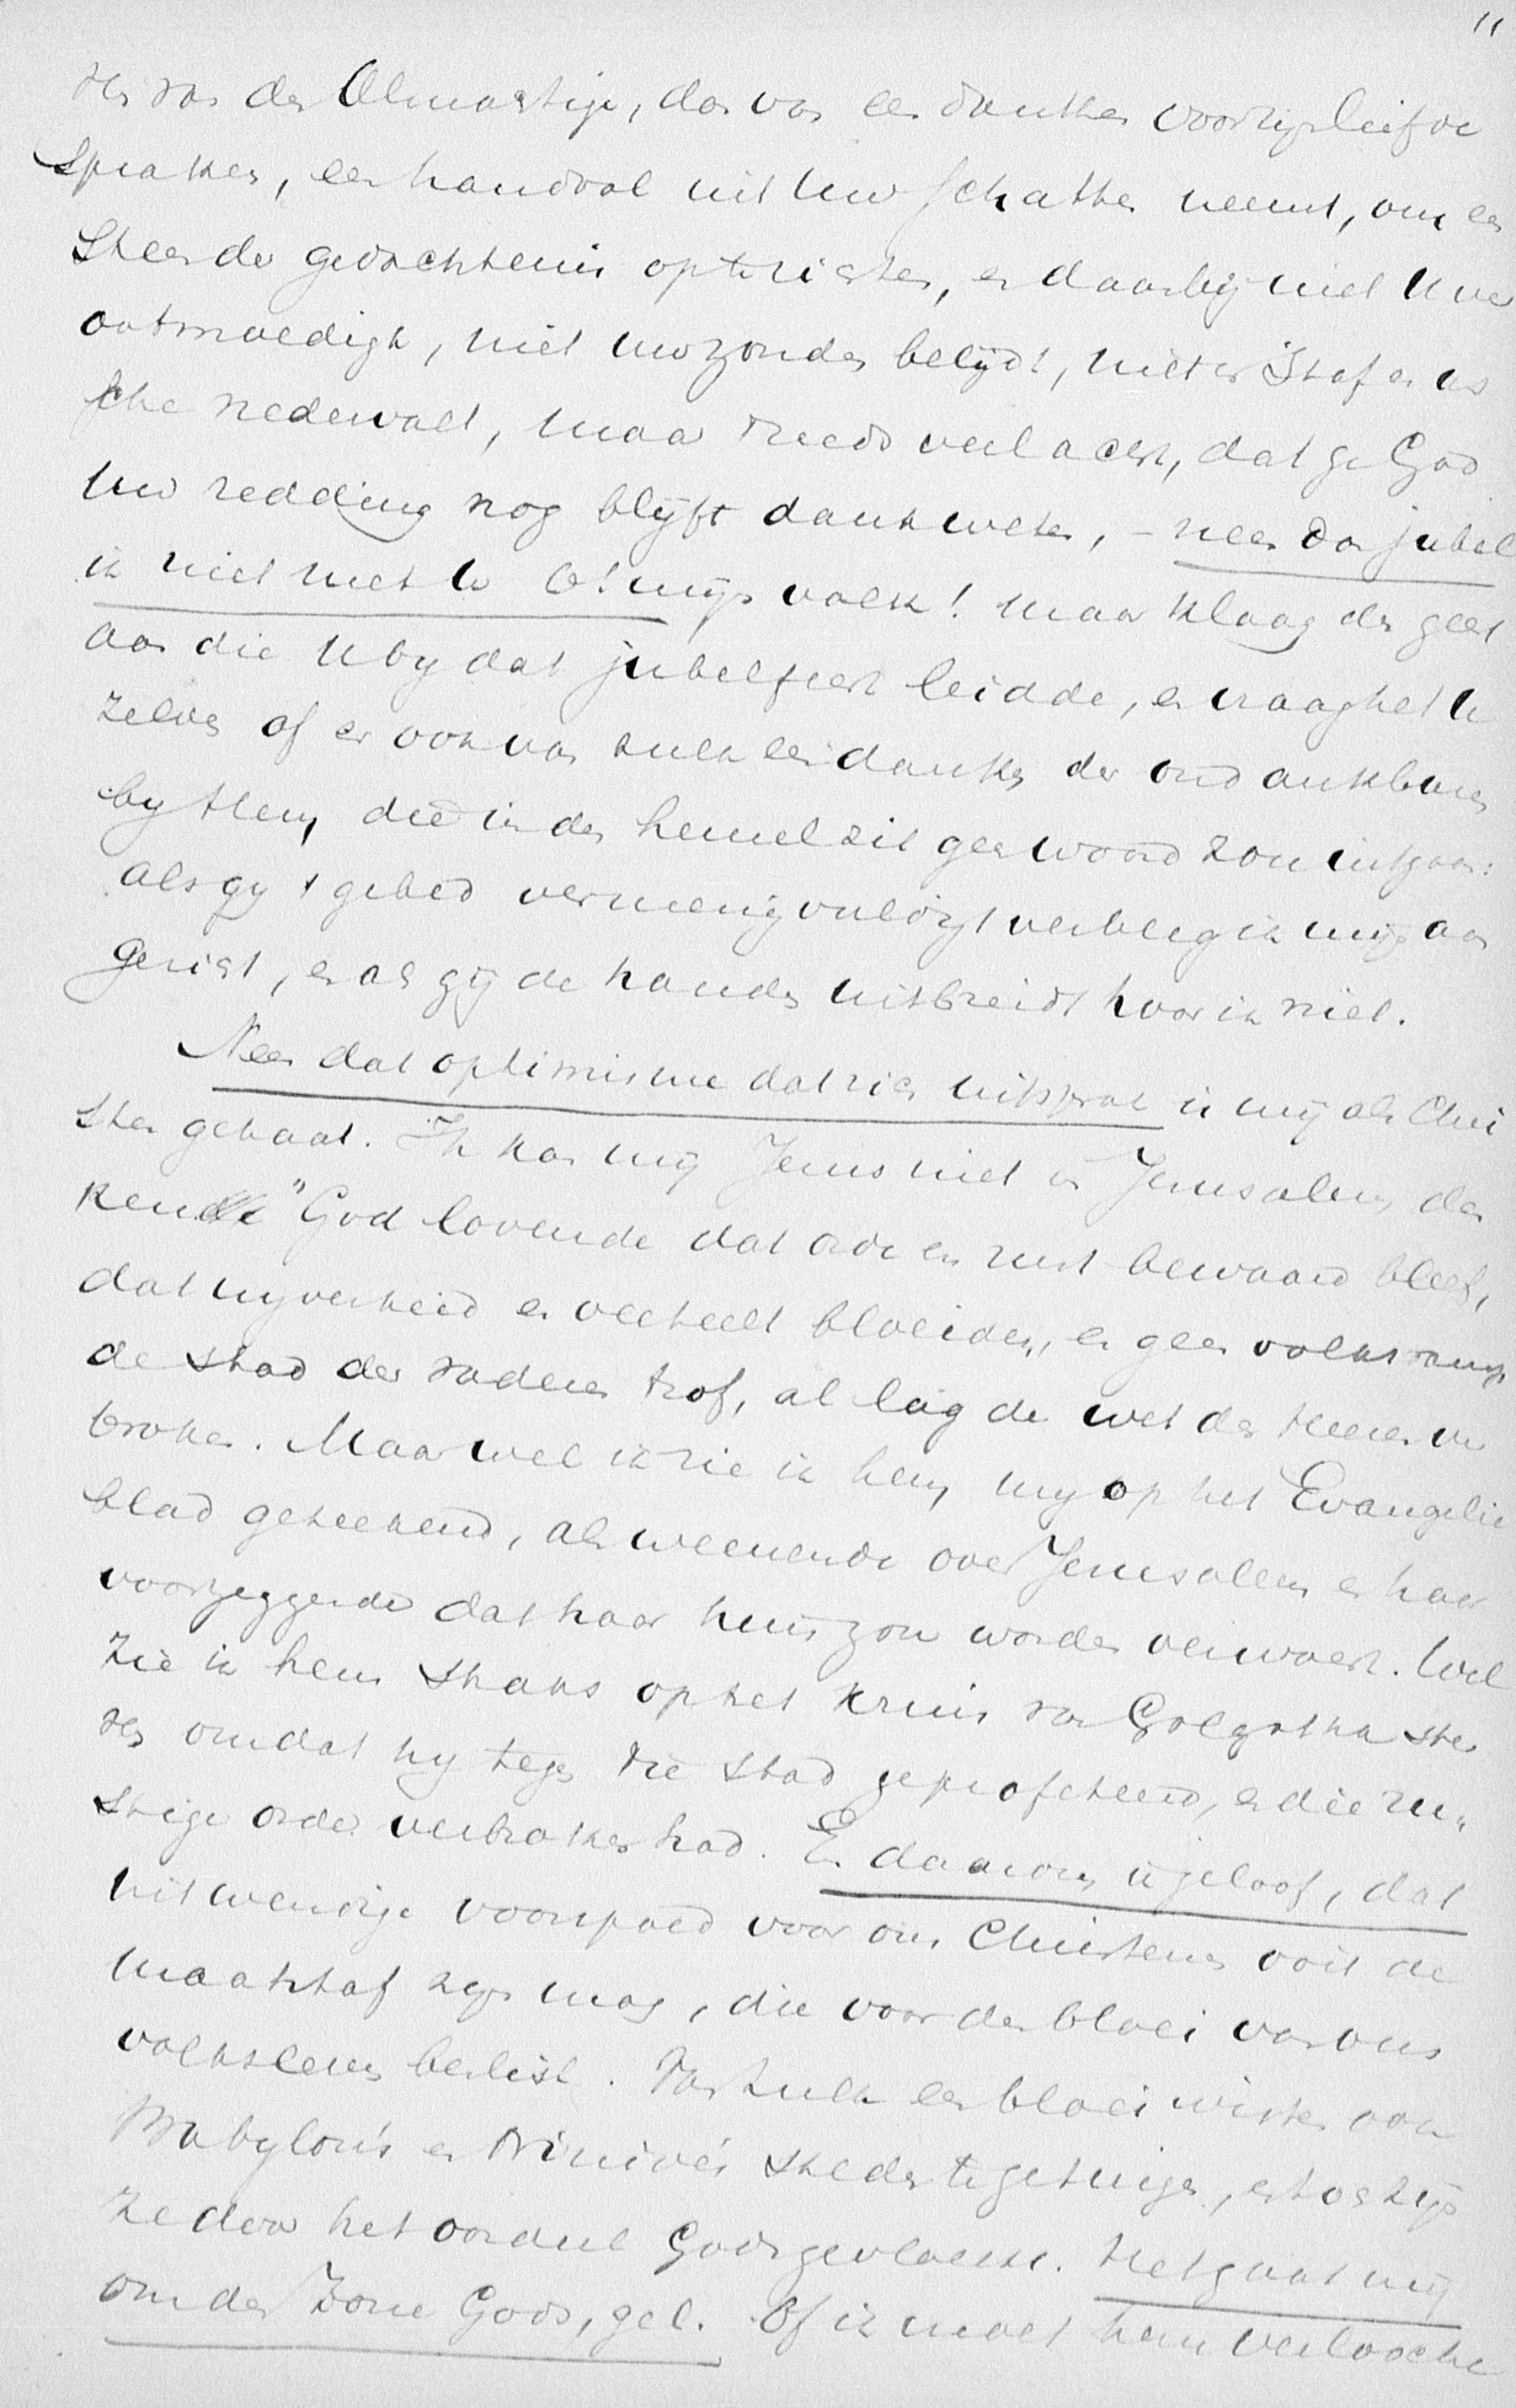 11
den van den Almachtige, dan van een danken voor zijn liefde
spraken, een handvol uit uw schatten neemt, om een
steen der gedachtenis opterichten, en daarbij niet U ver
ootmoedigt, niet uw zonden belijdt, niet in stof en as
sche nedervalt, maar reeds verlaast, dat ge God
uw redding nog blijft dankweten, – neen dan jubel
ik niet met U O! mijn volk! maar klaag den geest
aan die U by dat jubelfeest leidde, en vraag het U
zelven of er ook van zulk een danken der ondankbaren
by Hem, die in den hemel zit geen woord zou uitgaan:
als gy 't gebed vermenigvuldigt verberg ik mijn aan
gezicht, en als gij de handen uitbreidt hoor ik niet.
Neen dat optimisme dat hier uitsprak is mij als Chri
sten gehaat. Ik kan mij Jezus niet in Jerusalem den
kende "God lovende dat orde en rust bewaard bleef,
dat nyverheid en veeteelt bloeiden, en geen volksramp
de stad der vaderen trof, al lag de wet des Heeren ver
broken. Maar wel ik zie ik hem, my op het Evangelie
blad geteekend, als weenende over Jerusalem en haar
voorzeggende dat haar huis zou worden verwoest. Wel
zie ik hem straks op het kruis van Golgotha ster
ven omdat hy tegen die stad geprofeteerd, en die ru„
stige orde verbroken had. En daarom, ik geloof, dat
uitwendige voorspoed voor ons Christenen ooit de
maatstaf zijn mag, die voor den bloei van ons
volksleven beslist. Van zulk een bloei wisten ook
Babylon's en Ninivé's steden te getuigen, en toch zijn
ze door het oordeel Gods gevloekt. Het gaat mij
om den Zone Gods, gel. Of ik moet hem verlooche